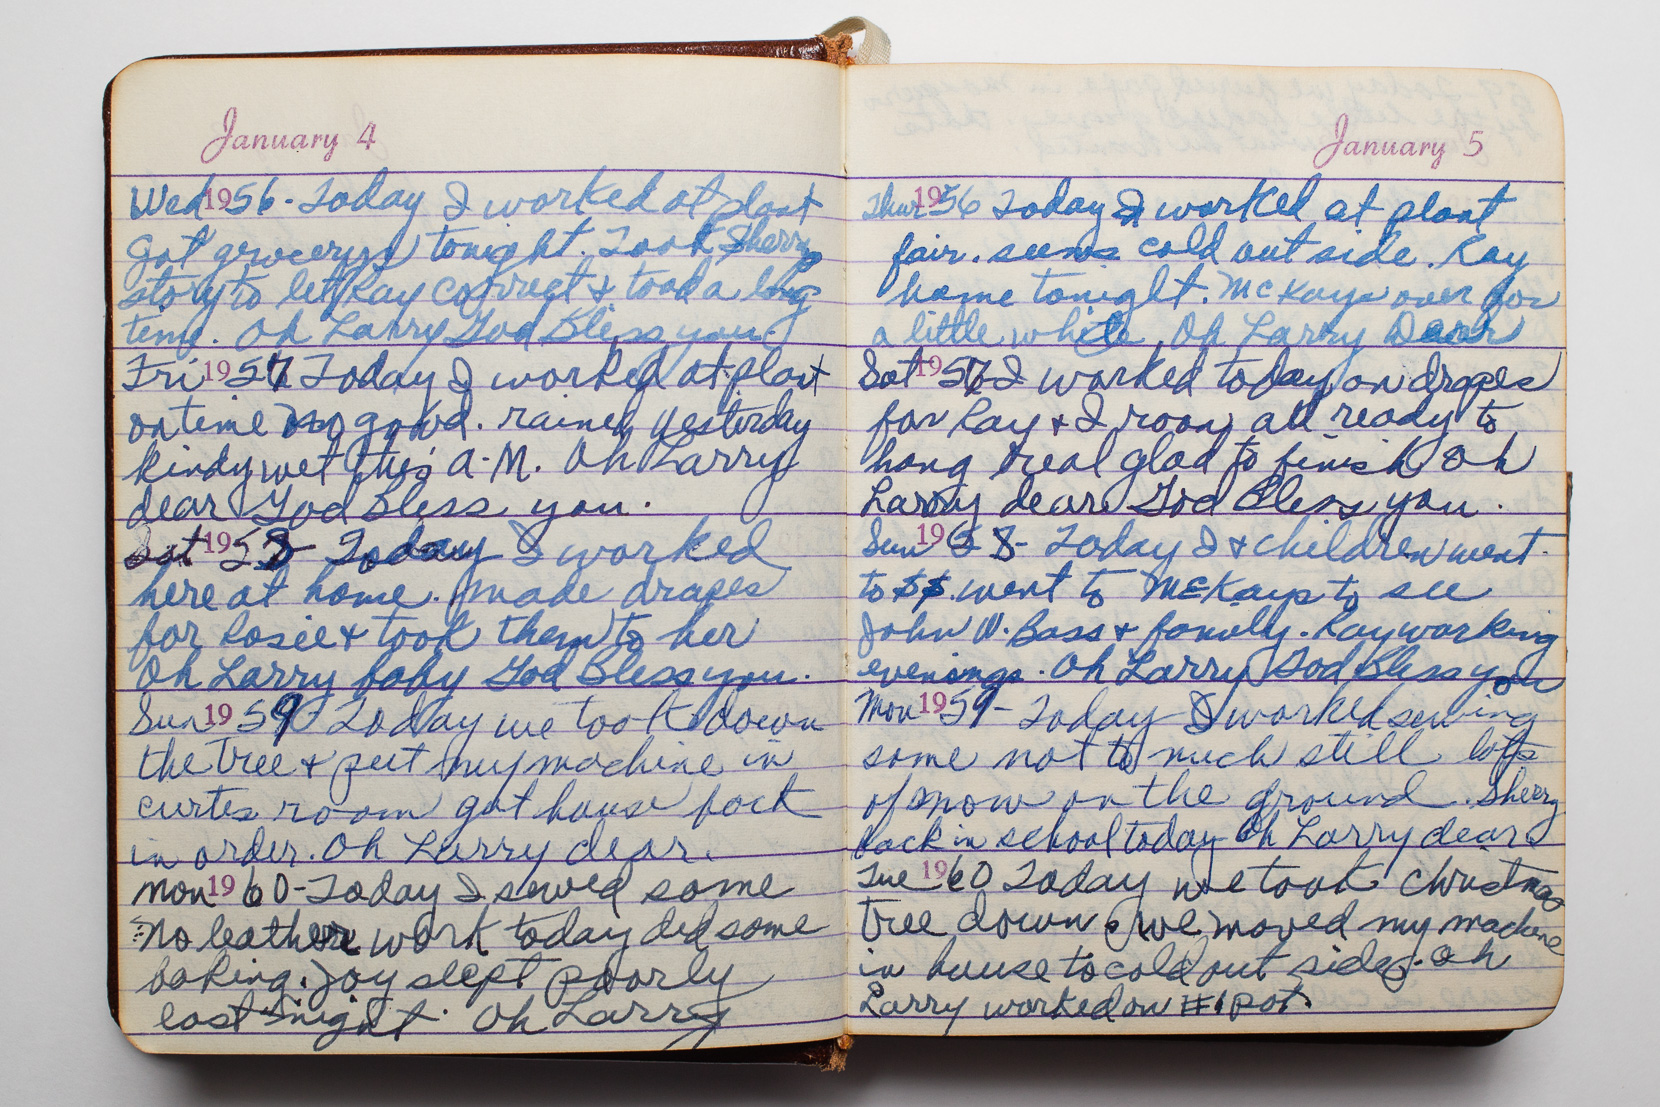 January 4
Wed 1956 - Today I worked at plant
got grocerys tonight. Took Sherry
story to let Ray correct & took a long
time. Oh Larry God Bless you.
Fri 1957 Today I worked at plant
on time so good. rained yesterday
kindy wet this A.M. Oh Larry
dear God Bless you.
Sat 1958 Today I worked
here at home. made drapes
for Rosie & took them to her
Oh Larry baby God Bless you.
Sun 1959 Today we took down
the tree & put my machine in
curtis room got house back
in order. Oh Larry dear.
Mon 1960 - Today I sewed some
No leather work today did some
baking. Joy slept poorly
last night. Oh Larry
January 5
Thur 1956 Today I worked at plant
fair. seems cold out side. Ray
home tonight. McKays over for
a little while Oh Larry Dear
Sat 1957 I worked today on drapes
for Ray & I room all ready to
hang real glad to finish Oh
Larry dear God Bless you.
Sun 1958 - Today I & children went
to SS. went to McKays to see
John W. Bass & family. Ray working
evenings. Oh Larry God Bless you
Mon 1959 - Today I worked sewing
some not to much still lots
of snow on the ground. Sherry
back in school today Oh Larry dear
Tue 1960 Today we took Christmas
tree down & we moved my machine
in house to cold out side. Oh
Larry worked on #1 pot.